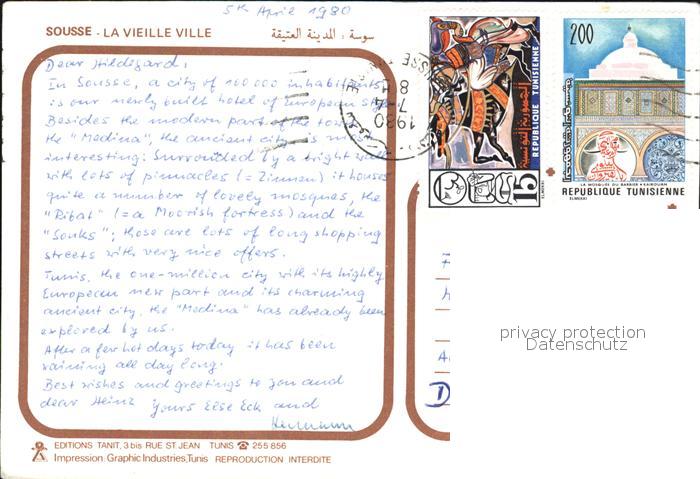 5th April 1980
SOUSSE - LA VIEILLE VILLE
سوسة : المدينة العتيقة
Dear Hildegard,
In Sousse, a city of 100 000 inhabitants
is our newly built hotel of European
Besides the modern part of the town
the "Medina", the ancient city is most
interesting: Surrounded by a bright wall
with lots of pinnacles (= Zinnen) it houses
quite a number of lovely mosques, the
"Ribat" (= a Moorish fortress) and the
"Souks"; those are lots of long shopping
streets with very nice offers.
Tunis, the one-million city with its highly
European new part and its charming
ancient city, the "Medina" has already been
explored by us.
After a few hot days today it has been
raining all day long.
Best wishes and greetings to you and
dear Heinz Yours Else Eck and
Hermann
EDITIONS TANIT, 3 bis RUE ST. JEAN TUNIS ☎ 255 856
Impression: Graphic Industries, Tunis REPRODUCTION INTERDITE
1980
الجمهورية التونسية
REPUBLIQUE TUNISIENNE
15
ELMEKKI
200
LA MOSQUEE DU BARBIER • KAIROUAN
REPUBLIQUE TUNISIENNE
ELMEKKI
privacy protection
Datenschutz
D